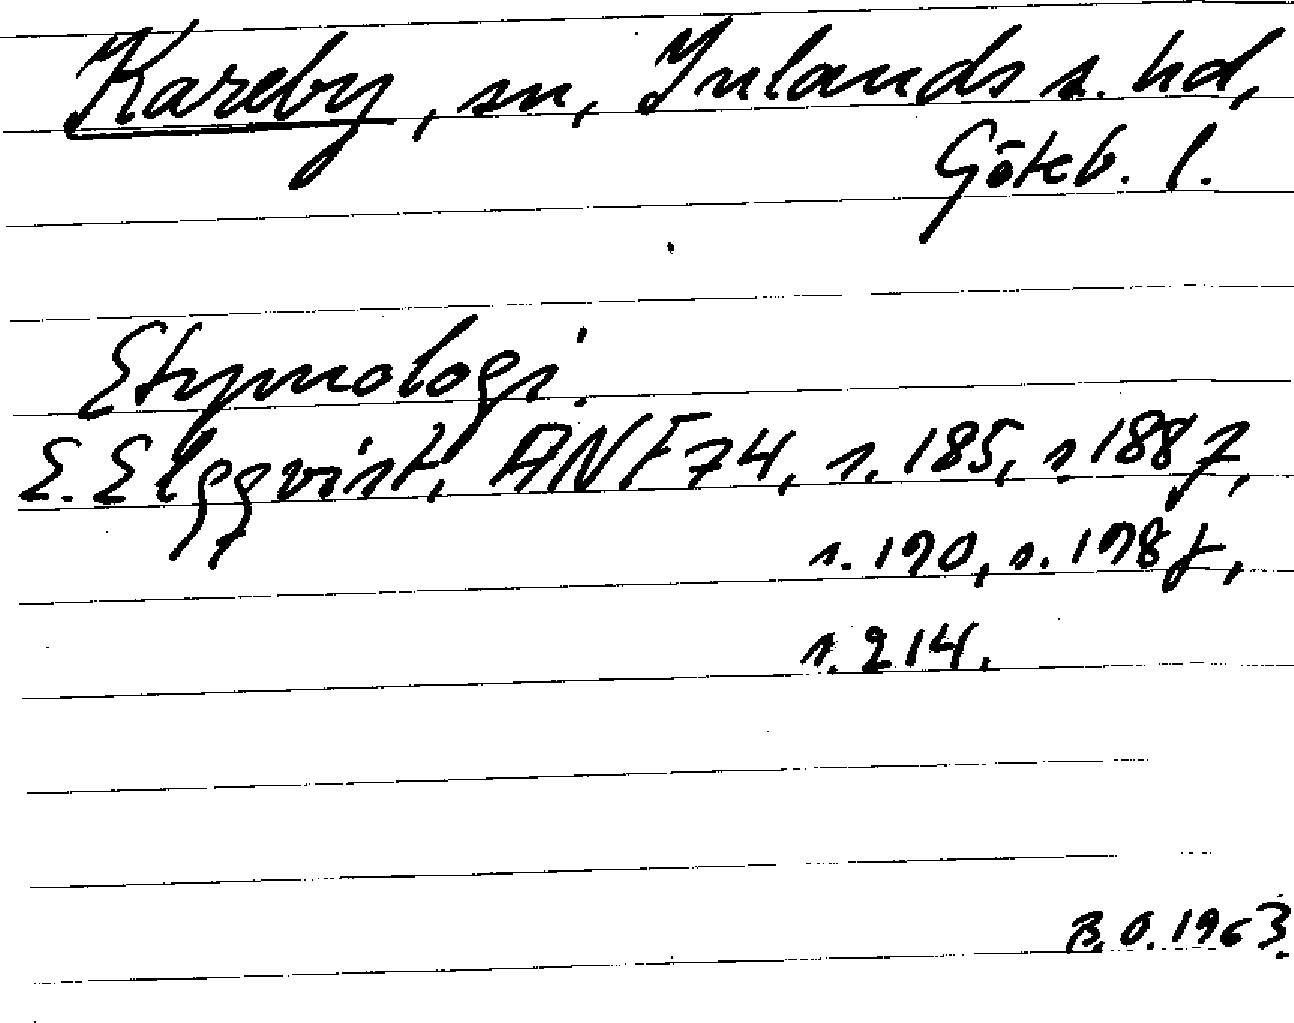 Kareby, sn, Inlands s. hd,
Göteb. l.
Etymologi.
E. Elgqvist, ANF 74, s. 185, s 188 f,
s. 190, s. 198 f,
s. 214.
B. O. 1963.